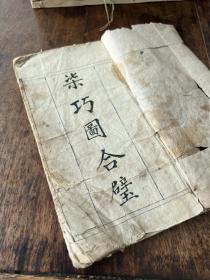 柒巧圖合璧